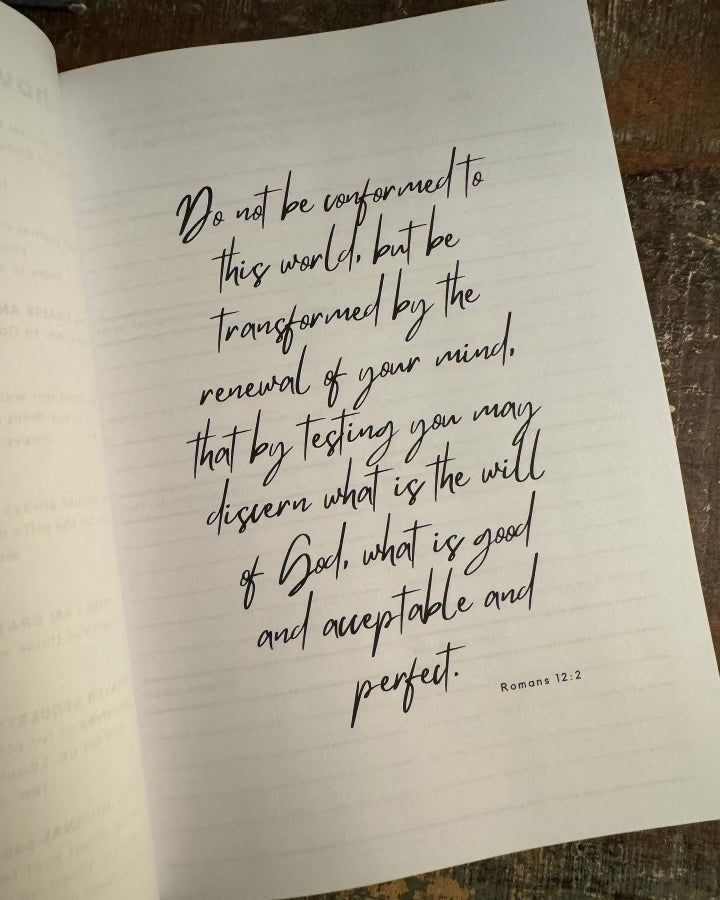 Do not be conformed to
this world, but be
transformed by the
renewal of your mind,
that by testing you may
discern what is the will
of God, what is good
and acceptable and
perfect.
Romans 12:2